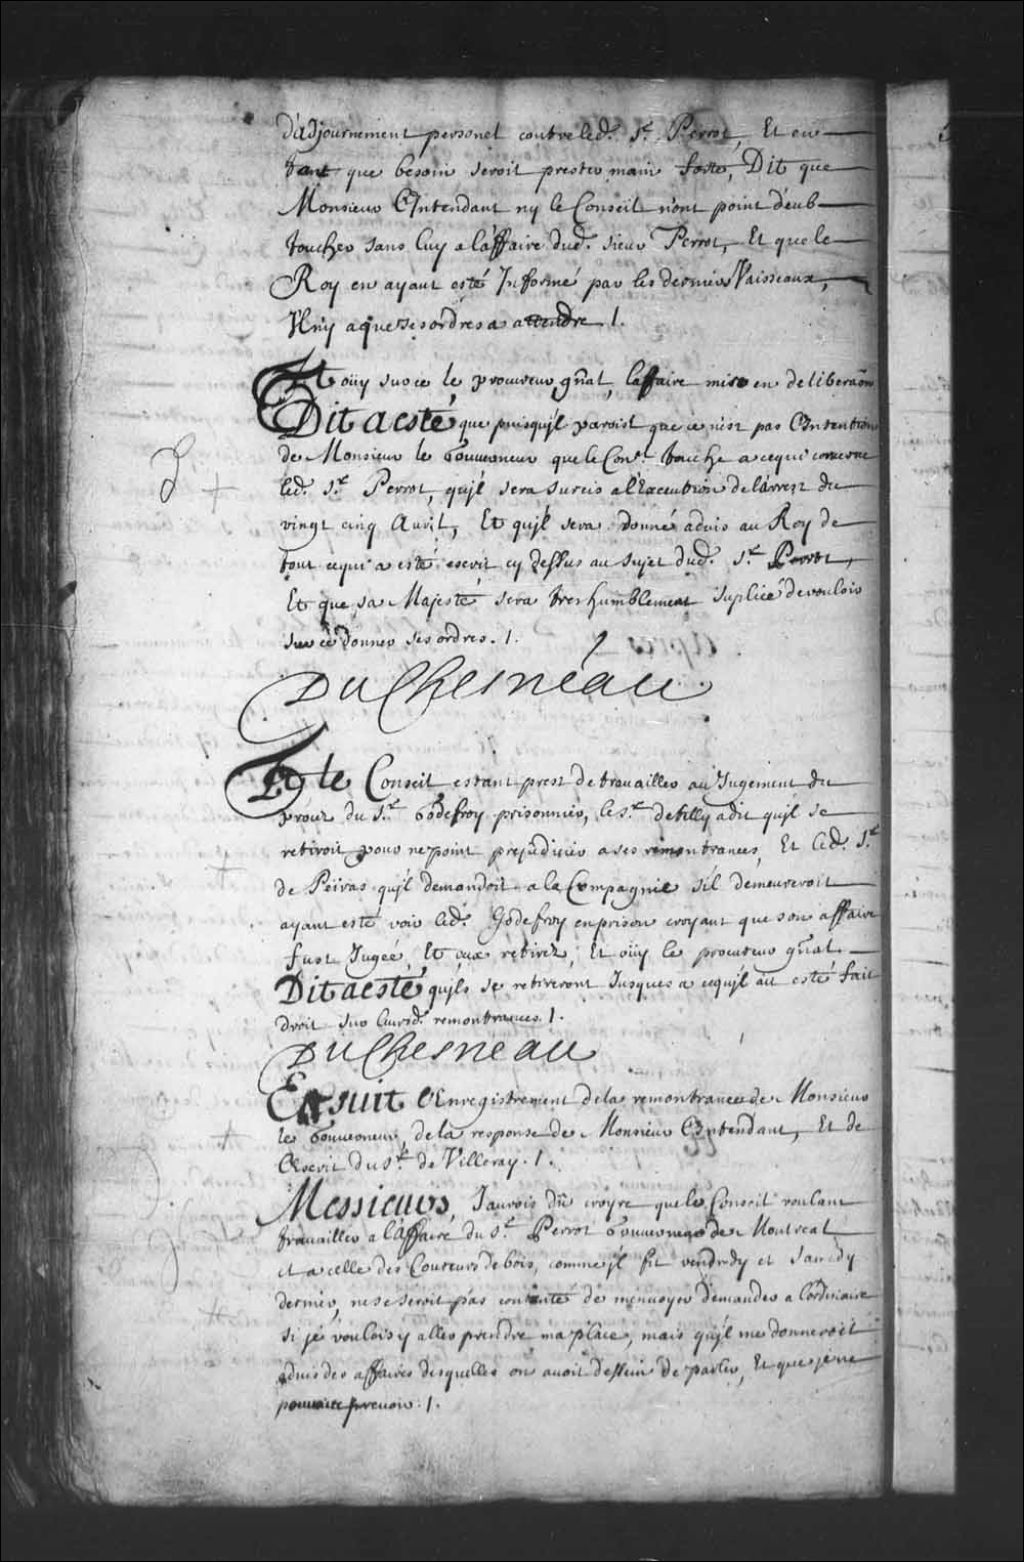 d'adjournement personel contre led. Sr. Perrot, Et en
tant que besoin seroit prester main forte, Dit que
Monsieur L'Intendant ny le Conseil n'ont point deub
toucher sans luy a l'affaire dud. sieur Perrot, Et que le
Roy en ayant esté Informé par les derniers Vaisseaux,
Il n'y a que ses ordres a attendre ./.
Et oüy sur ce le procureur gñal, l'affaire mise en deliberaõn
Dit a esté que puisqu'il paroist que ce n'est pas L'Intention
de Monsieur le Gouverneur que le Conel. touche a ce qui concerne
led. Sr. Perrot, qu'il sera surcis a l'Execution de l'arrest du
vingt cinq Avril, Et qu'il sera donné advis au Roy de
tout ce qui a esté escrit cy dessus au sujet dud. Sr. Perrot,
Et que sa Majesté sera tres humblement suplieé de vouloir
sur ce donner ses ordres ./.
DuChesneau
Et le Conseil estant prest de travailler au Jugement du
procez du Sr. Godefroy prisonnier, le Sr. de Tilly a dit qu'il se
retiroit pour ne point prejudicier a ses remontrances, Et led. Sr.
de Peiras qu'il demandoit a la Compagnie s'il demeureroit
ayant esté voir led. Godefroy en prison croyant que son affaire
fust Jugée, Et eux retirez, Et oüy le procureur gñal
Dit a esté qu'ils se retireront Jusques a ce qu'il ait esté fait
droit sur leursd. remontrances ./.
DuChesneau
Ensuit l'Enregistrement de la remontrance de Monsieur
le Gouverneur, de la response de Monsieur L'Intendant, Et de
L'Escrit du Sr. de Villeray ./.
Messieurs, J'aurois dû croyre que le Conseil voulant
travailler a l'affaire du Sr. Perrot Gouverneur de Montreal
et a celle des Coureurs de bois, comme il fit vendredy et samedy
dernier, ne se seroit pas contenté de m'envoyer demander a l'ordinaire
si je voulois y aller prendre ma place, mais qu'il me donneroit
advis des affaires desquelles on avoit dessein de parler, Et que je ne
pouvois prevoir ./.